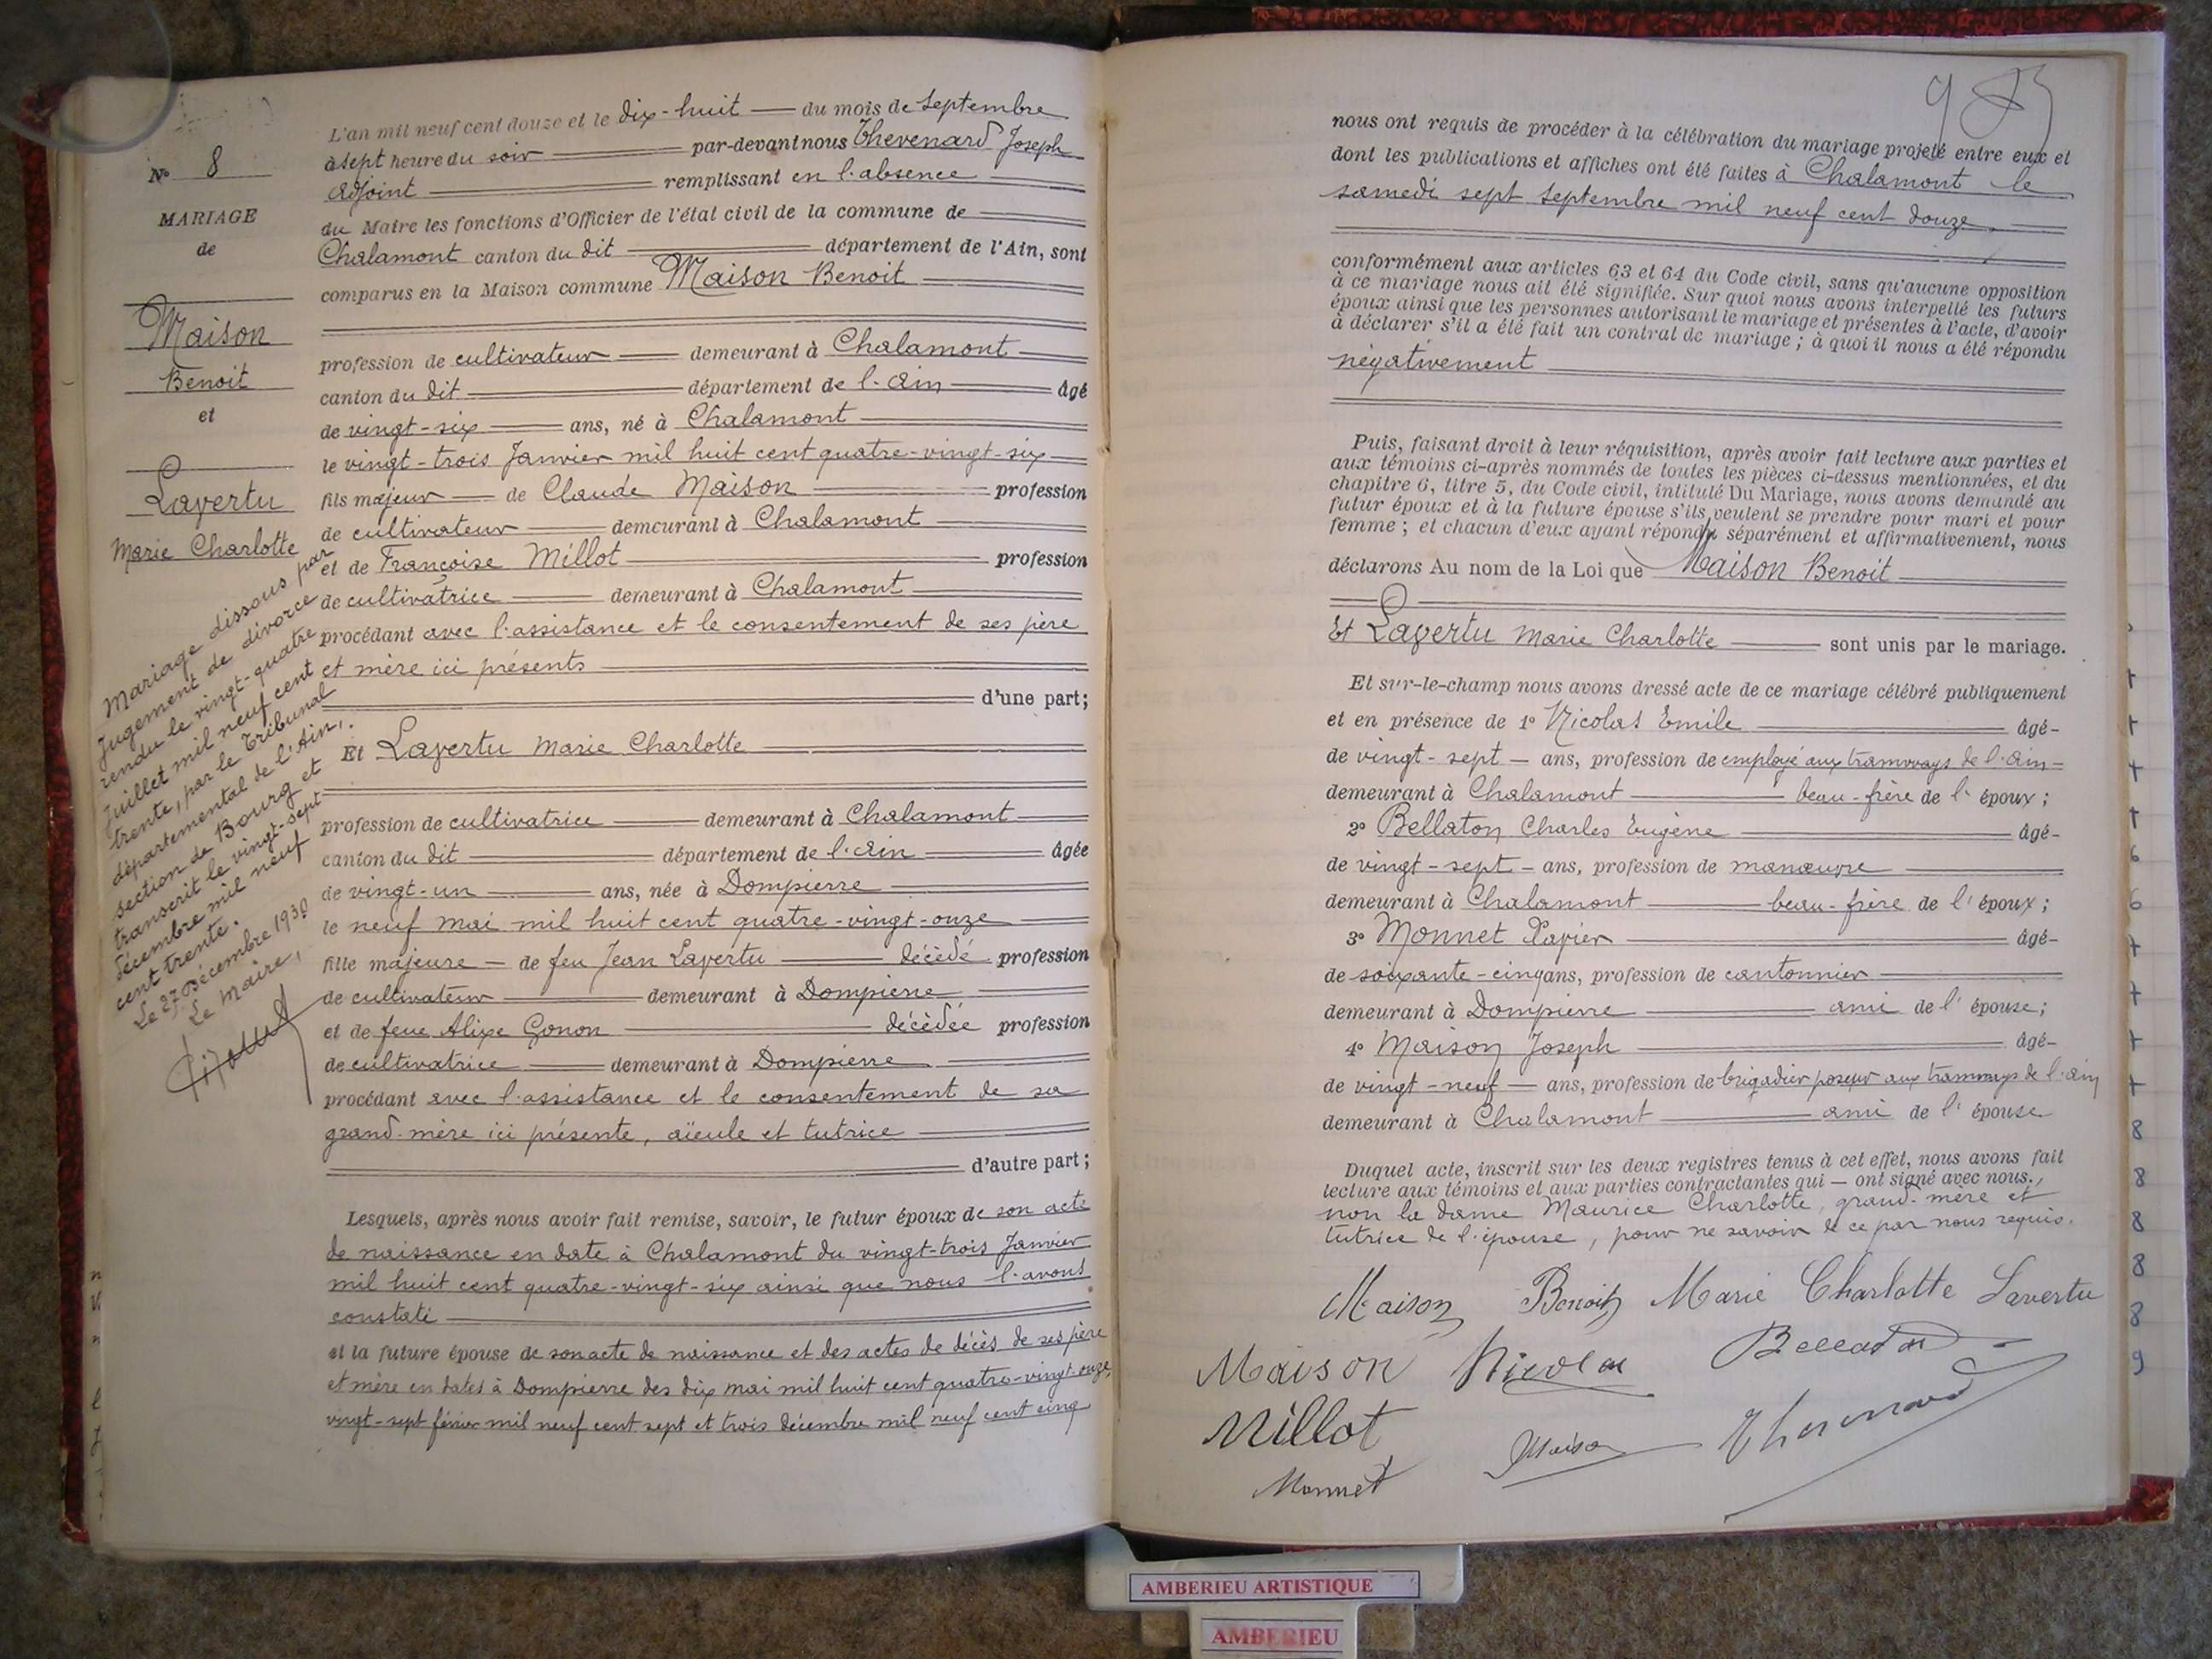 N° 8
MARIAGE
de
Maison
Benoit
et
Lavertu
Marie Charlotte
Mariage dissous par
jugement de divorce
rendu le vingt-quatre
Juillet mil neuf cent
trente, par le Tribunal
départemental de l'Ain,
section de Bourg et
transcrit le vingt-sept
décembre mil neuf
cent trente.
Le 27 Décembre 1930
Le Maire,
L'an mil neuf cent douze et le dix-huit du mois de Septembre
à sept heure du soir par-devant nous Thevenard Joseph
adjoint remplissant en l'absence
du Maire les fonctions d'Officier de l'état civil de la commune de
Chalamont canton du dit département de l'Ain, sont
comparus en la Maison commune Maison Benoit
profession de cultivateur demeurant à Chalamont
canton du dit département de l'Ain âgé
de vingt-six ans, né à Chalamont
le vingt-trois Janvier mil huit cent quatre-vingt-six
fils majeur de Claude Maison profession
de cultivateur demeurant à Chalamont
et de Françoise Millot profession
de cultivatrice demeurant à Chalamont
procédant avec l'assistance et le consentement de ses père
et mère ici présents
d'une part;
Et Lavertu Marie Charlotte
profession de cultivatrice demeurant à Chalamont
canton du dit département de l'Ain âgée
de vingt-un ans, née à Dompierre
le neuf mai mil huit cent quatre-vingt-onze
fille majeure de feu Jean Lavertu décédé profession
de cultivateur demeurant à Dompierre
et de feue Alixe Gonon décèdée profession
de cultivatrice demeurant à Dompierre
procédant avec l'assistance et le consentement de sa
grand-mère ici présente, aïeule et tutrice
d'autre part;
Lesquels, après nous avoir fait remise, savoir, le futur époux de son acte
de naissance en date à Chalamont du vingt-trois Janvier
mil huit cent quatre-vingt-six ainsi que nous l'avons
constaté
et la future épouse de son acte de naissance et des actes de décès de ses père
et mère en dates à Dompierre des dix mai mil huit cent quatre-vingt-onze,
vingt-sept février mil neuf cent sept et trois décembre mil neuf cent cinq
9
nous ont requis de procéder à la célébration du mariage projeté entre eux et
dont les publications et affiches ont été faites à Chalamont le
samedi sept septembre mil neuf cent douze,
conformément aux articles 63 et 64 du Code civil, sans qu'aucune opposition
à ce mariage nous ait été signifiée. Sur quoi nous avons interpellé les futurs
époux ainsi que les personnes autorisant le mariage et présentes à l'acte, d'avoir
à déclarer s'il a été fait un contrat de mariage; à quoi il nous a été répondu
négativement
Puis, faisant droit à leur réquisition, après avoir fait lecture aux parties et
aux témoins ci-après nommés de toutes les pièces ci-dessus mentionnées, et du
chapitre 6, titre 5, du Code civil, intitulé Du Mariage, nous avons demandé au
futur époux et à la future épouse s'ils veulent se prendre pour mari et pour
femme; et chacun d'eux ayant répondu séparément et affirmativement, nous
déclarons Au nom de la Loi que Maison Benoit
Et Lavertu Marie Charlotte sont unis par le mariage.
Et sur-le-champ nous avons dressé acte de ce mariage célébré publiquement
et en présence de 1° Nicolas Emile âgé
de vingt-sept ans, profession de employé aux tramways de l'Ain
demeurant à Chalamont beau-frère de l'époux;
2° Bellaton Charles Eugène âgé
de vingt-sept ans, profession de manœuvre
demeurant à Chalamont beau-frère de l'époux;
3° Monnet Xavier âgé
de soixante-cinq ans, profession de cantonnier
demeurant à Dompierre ami de l'épouse;
4° Maison Joseph âgé
de vingt-neuf ans, profession de brigadier poseur aux tramways de l'Ain
demeurant à Chalamont ami de l'épouse
Duquel acte, inscrit sur les deux registres tenus à cet effet, nous avons fait
lecture aux témoins et aux parties contractantes qui — ont signé avec nous,
non la dame Maurice Charlotte, grand-mère et
tutrice de l'épouse, pour ne savoir de ce par nous requis.
Maison Benoit Marie Charlotte Lavertu
Maison Nicolas Bellaton
Millot Maison Thevenard
Monnet
6
6
7
7
8
8
8
8
8
9
AMBERIEU ARTISTIQUE
AMBERIEU